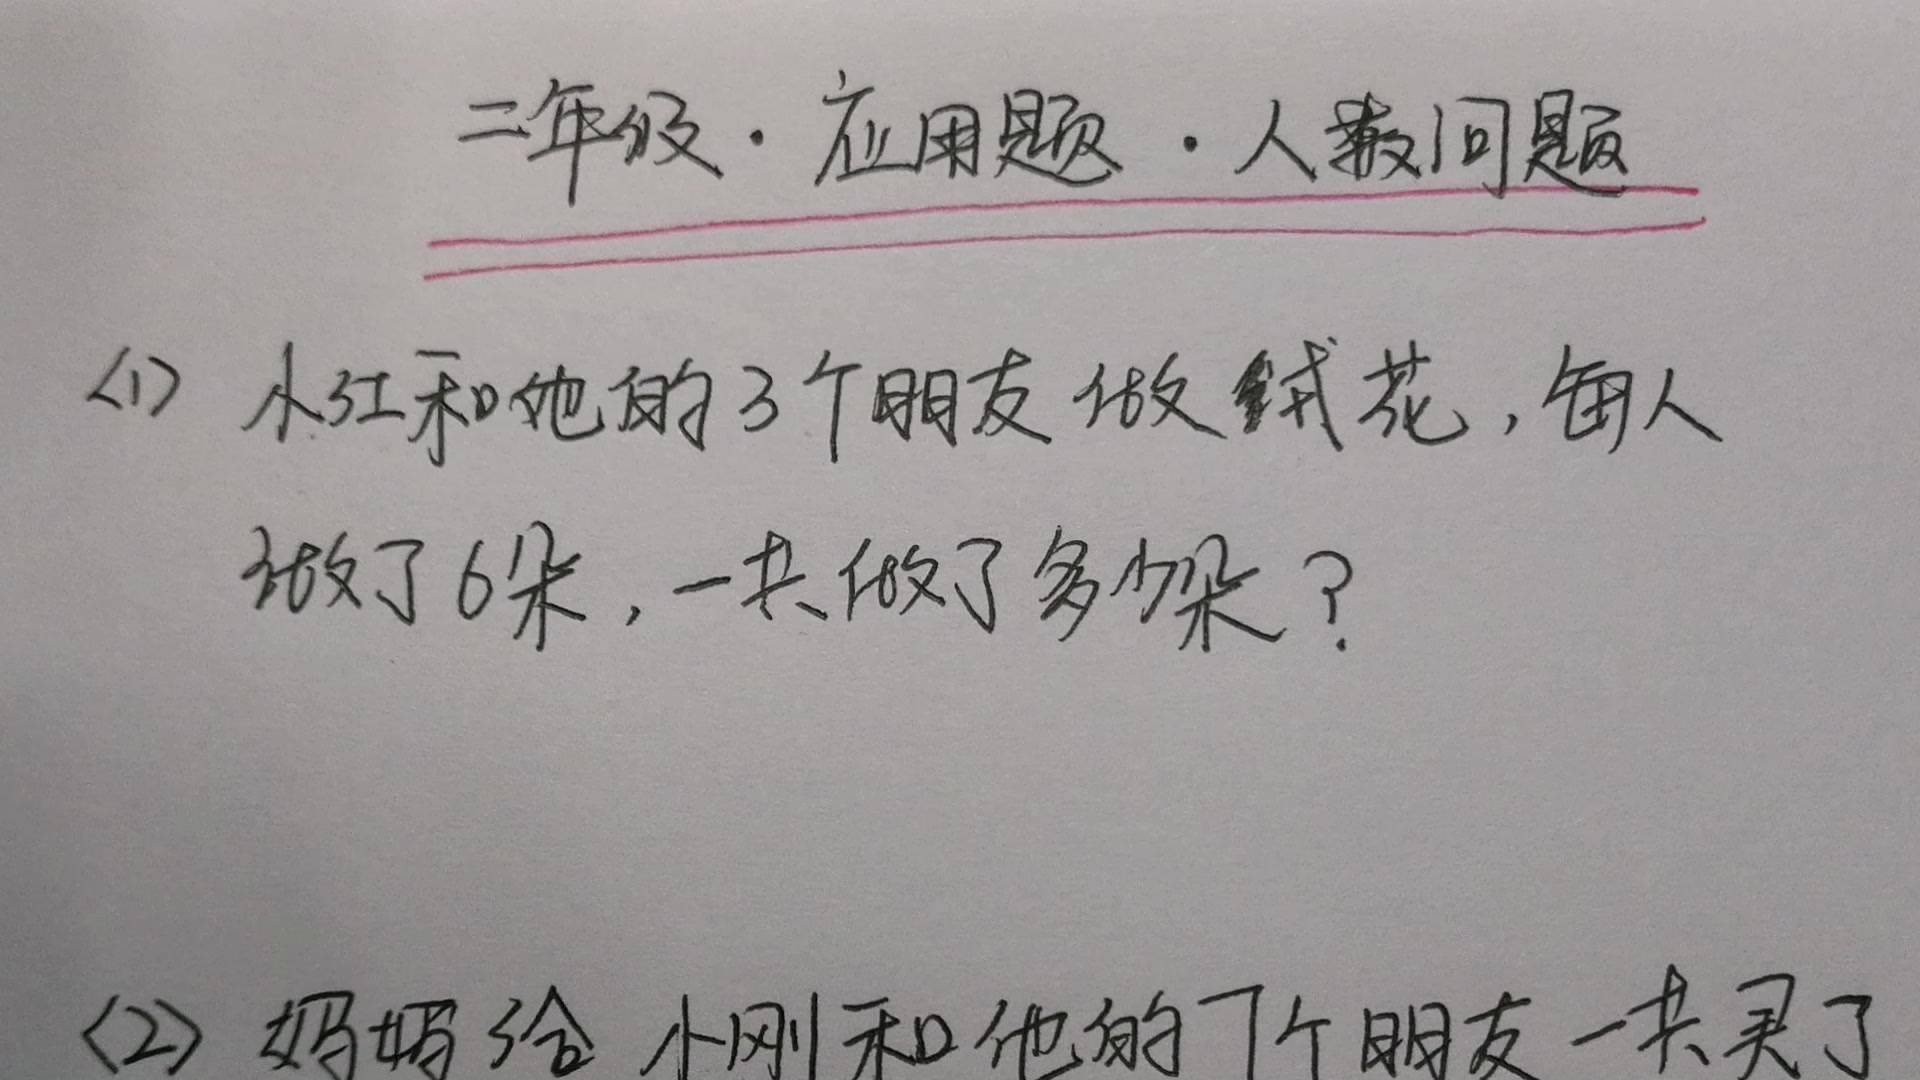 二年级·应用题·人数问题
<1> 小红和他的3个朋友做绒花,每人
做了6朵,一共做了多少朵?
<2> 妈妈给小刚和他的7个朋友一共买了